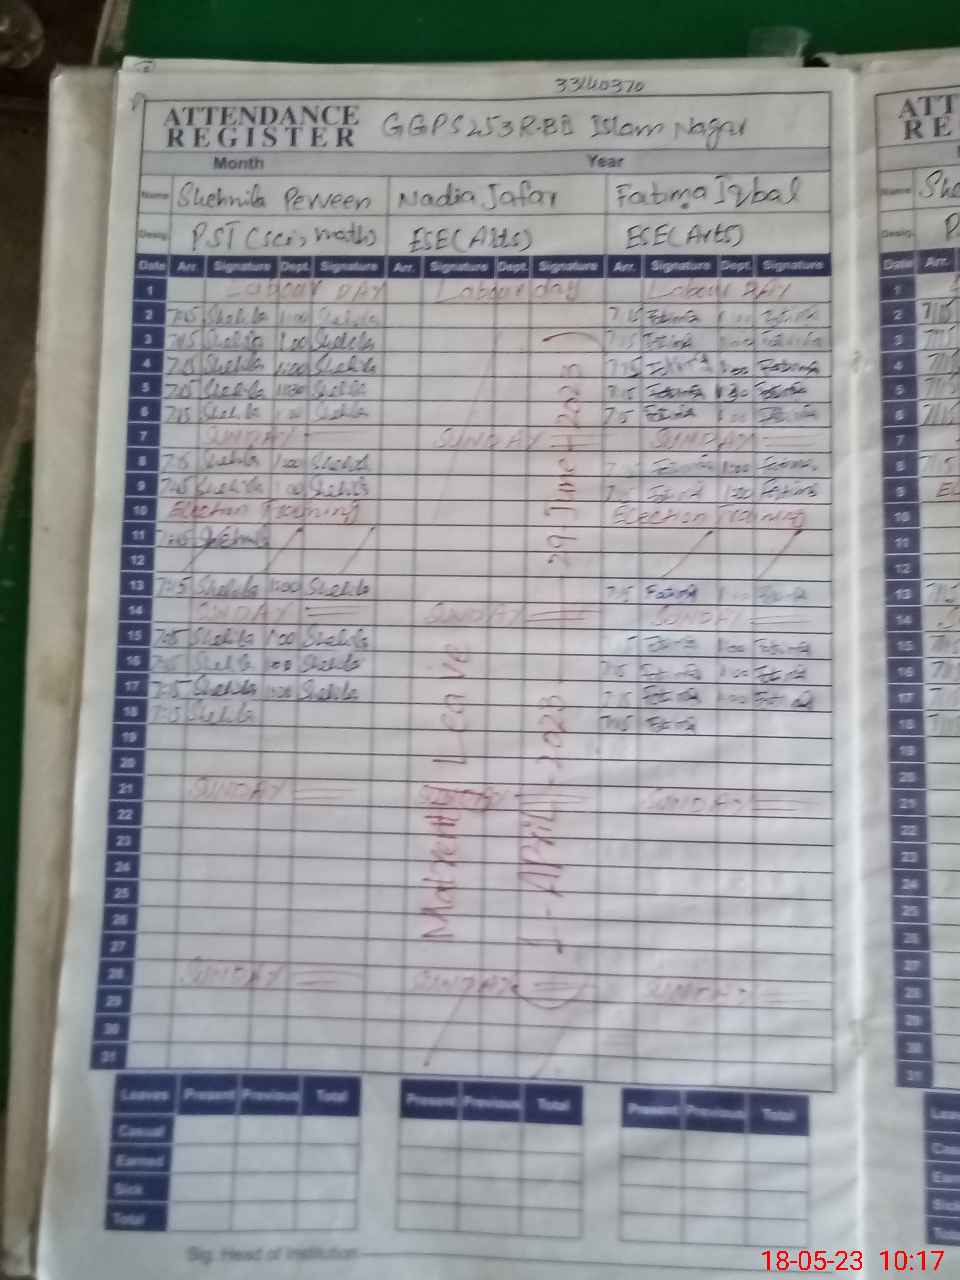 33140370
ATTENDANCE REGISTER GGPS 253 R.BB Islam Nagar
Month Year
Name Shehnila Perveen Nadia Jafar Fatima Iqbal
Desig. PST (sci, math) ESE (Arts) ESE (Arts)
Date Arr. Signature Dept. Signature Arr. Signature Dept. Signature Arr. Signature Dept. Signature
1 Labour DAY Labour day Labour DAY
2 7:15 Shehila 1:00 Shehila 7:15 Fatima 1:00 Fatima
3 Shehila 1:00 Shehila 7:15 Fatima
4 7:15 Shehila 1:00 Shehila 7:15 1:00 Fatima
5 7:15 Shehila Shehila 7:15 Fatima Fatima
6 7:15 Shehila 1:00 Shehila 7:15 Fatima 1:00 Fatima
7 SUNDAY SUNDAY SUNDAY
8 7:15 Shehila 1:00 Shehila Fatima 1:00 Fatima
9 Shehila 1:00 Shehila Fatima 1:00 Fatima
10 Election Training Election Training
11
12
13 7:15 Shehila 1:00 Shehila 7:15 Fatima
14 SUNDAY SUNDAY SUNDAY
15 7:15 Shehila 1:00 Shehila Fatima 1:00 Fatima
16 Shehila 1:00 Shehila 7:15 Fatima 1:00 Fatima
17 7:15 Shehila 1:00 Shehila 7:15 Fatima 1:00 Fatima
18 7:15 Shehila 7:15 Fatima
19
20
21 SUNDAY SUNDAY SUNDAY
22
23
24
25
26
27
28 SUNDAY SUNDAY SUNDAY
29
30
31
Leave
1-April-2023 29-June-2023
Leaves Present Previous Total Present Previous Total Present Previous Total
Casual
Earned
Sick
Total
Sig. Head of Institution
ATT
RE
Name Sh
Desig. P
Date Arr.
1
2 7:15
3 7:15
4 7:15
5 7:15
6 7:15
7
8 7:15
9
10
11
12
13
14
15
16
17
18
19
20
21
22
23
24
25
26
27
28
29
30
31
18-05-23 10:17